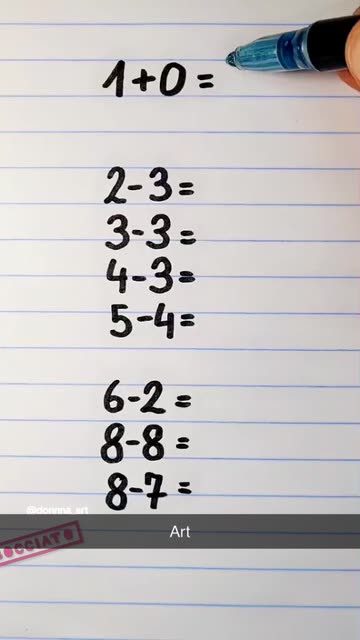 1+0=
2-3=
3-3=
4-3=
5-4=
6-2=
8-8=
8-7=
@donnna_art
Art
BOCCIATO